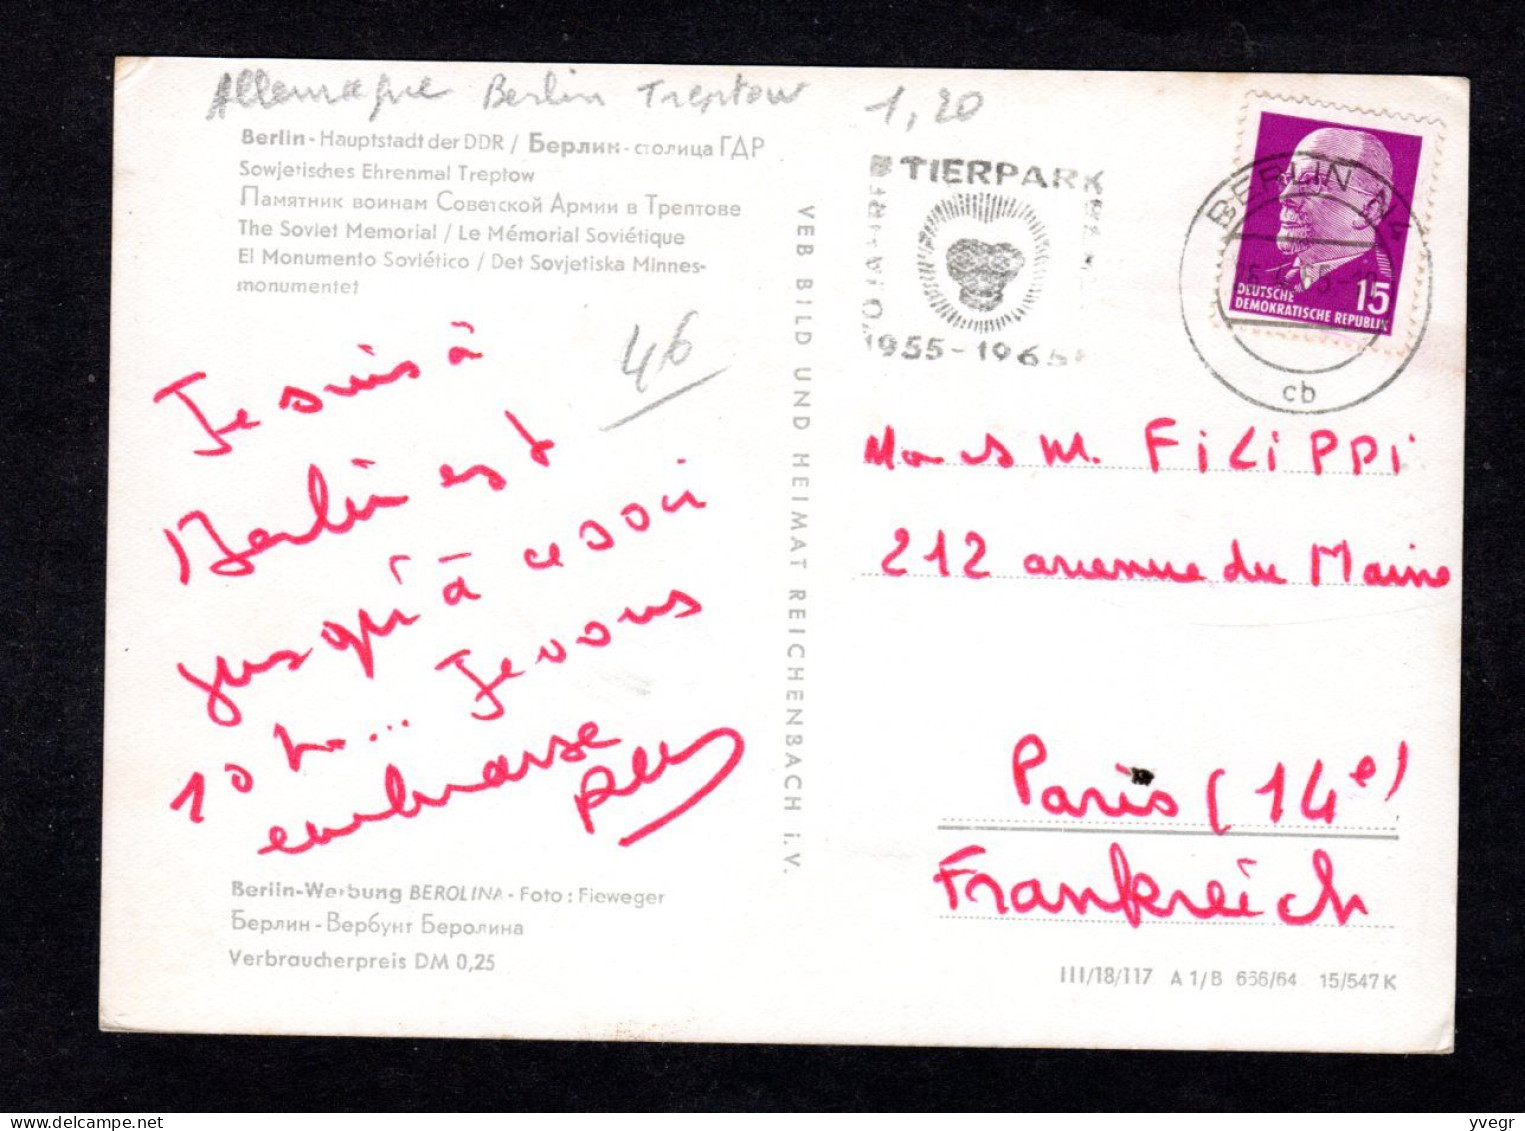 Allemagne Berlin Treptow 1,20
Berlin - Hauptstadt der DDR / Берлин - столица ГДР
Sowjetisches Ehrenmal Treptow
Памятник воинам Советской Армии в Трептове
The Soviet Memorial / Le Mémorial Soviétique
El Monumento Soviético / Det Sovjetiska Minnes-
monumentet
46
Je suis à
Berlin est
jusqu'à ce soir
10 h... Je vous
embrasse
Berlin-Werbung BEROLINA - Foto: Fieweger
Берлин - Вербунг Беролина
Verbraucherpreis DM 0,25
VEB BILD UND HEIMAT REICHENBACH i. V.
TIERPARK
1955-1965
BERLIN N4
cb
15
DEUTSCHE
DEMOKRATISCHE REPUBLIK
M. FiLiPPi
212 avenue du Maine
Paris (14e)
Frankreich
III/18/117 A 1/B 656/64 15/547 K
yvegr